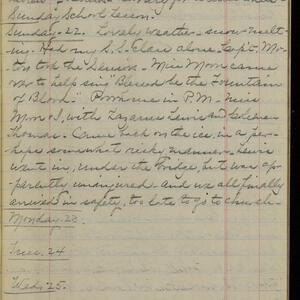 Sunday School Lesson.
Sunday - 22. Lovely weather - snow melt-
ing. Had my S.S. Class alone. Lept. Mor-
ton took the Seniors - Miss Moon came
over to help sing "Blessed be the Fountain
of Blood." Row home in P.M. - Miss
Moon & I, with Lazarus Lewis and
Thomas. Came back on the ice, in a per-
haps somewhat risky manner. Lewis
went in, under the bridge, but was ap-
parently uninjured - and we all finally
arrived in safety, too late to go to church -
Monday - 23.
Tues. 24
Wed. 25.